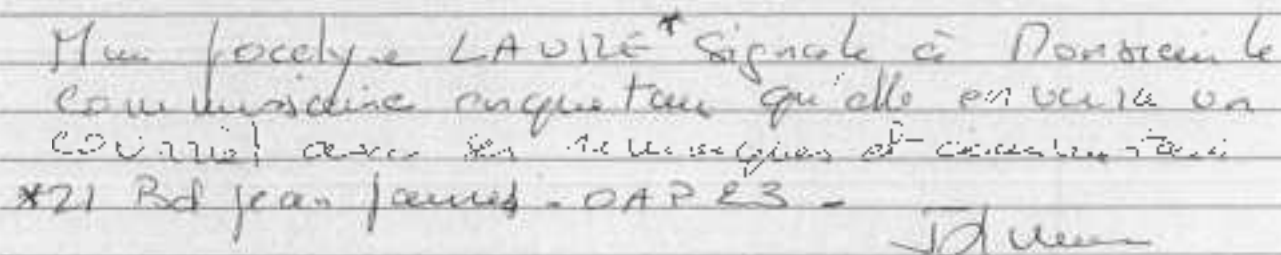 Mme Jocelyne LAURE* signale à Monsieur le
Commissaire enquêteur qu'elle enverra un
courriel avec ses remarques et
*21 Bd Jean Jaurès - OAP 23 -